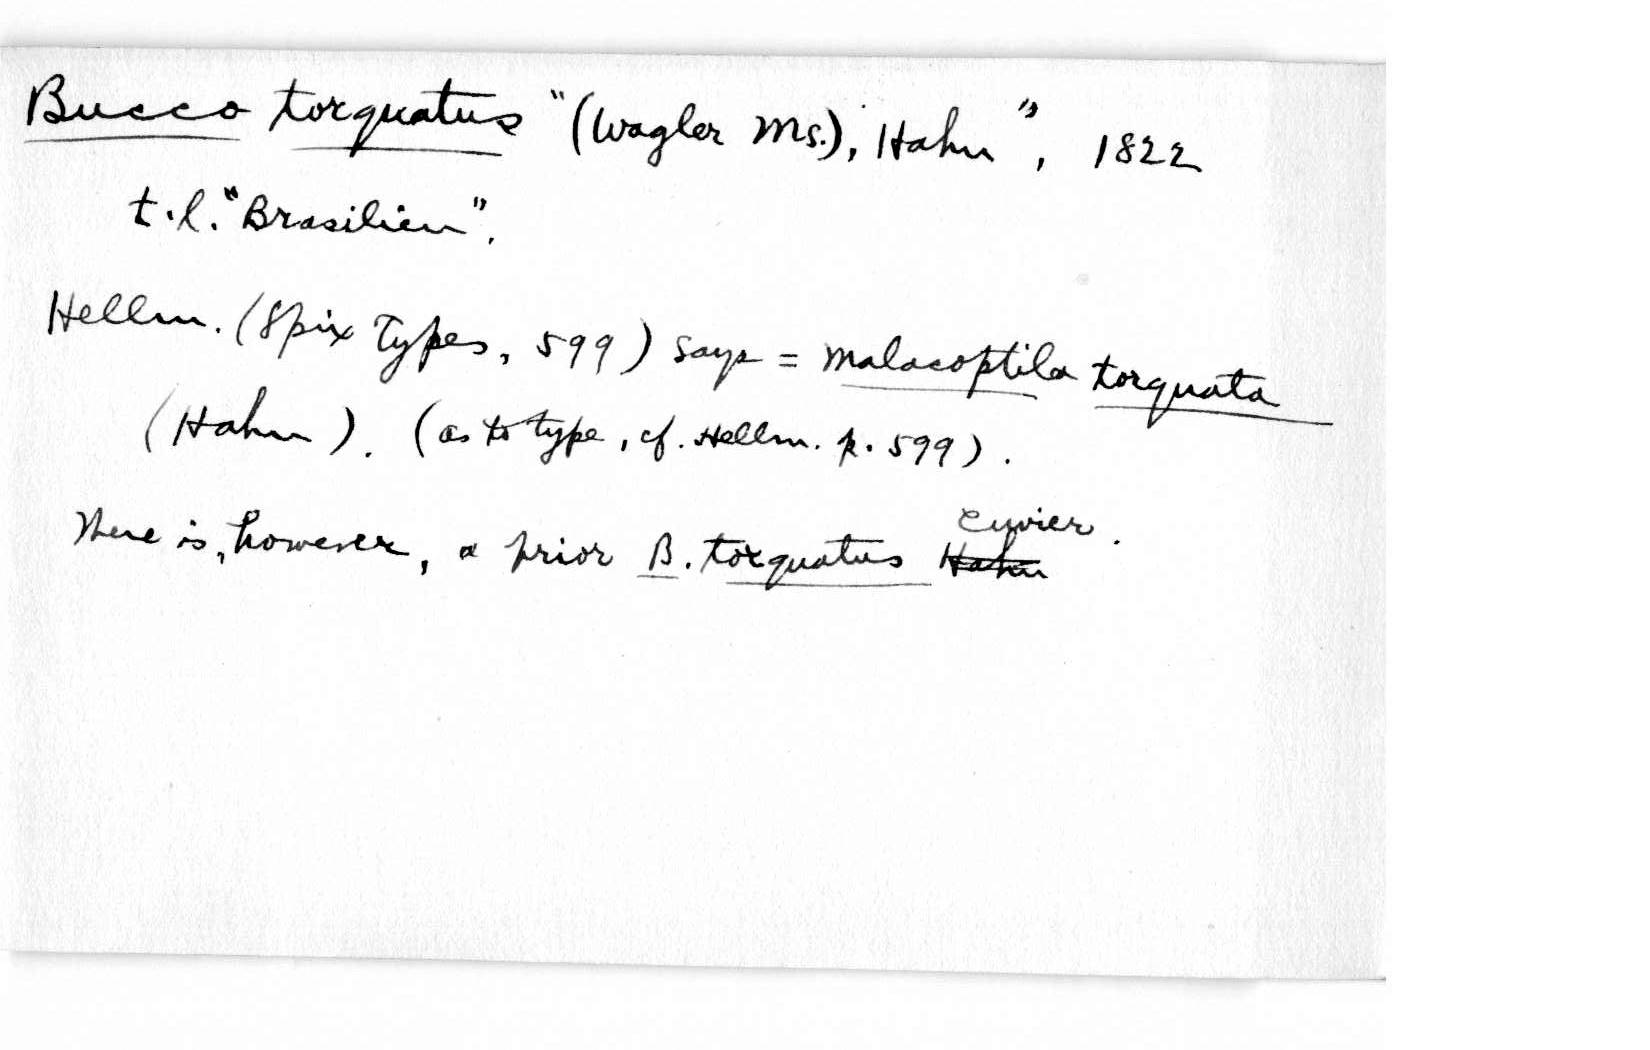 Bucco torquatus "(Wagler Ms.), Hahn", 1822
t.l. "Brasilien".
Hellm. (Spix Types, 599) says = Malacoptila torquata
(Hahn). (as to type, cf. Hellm. p. 599).
There is, however, a prior B. torquatus Hahn Cuvier.